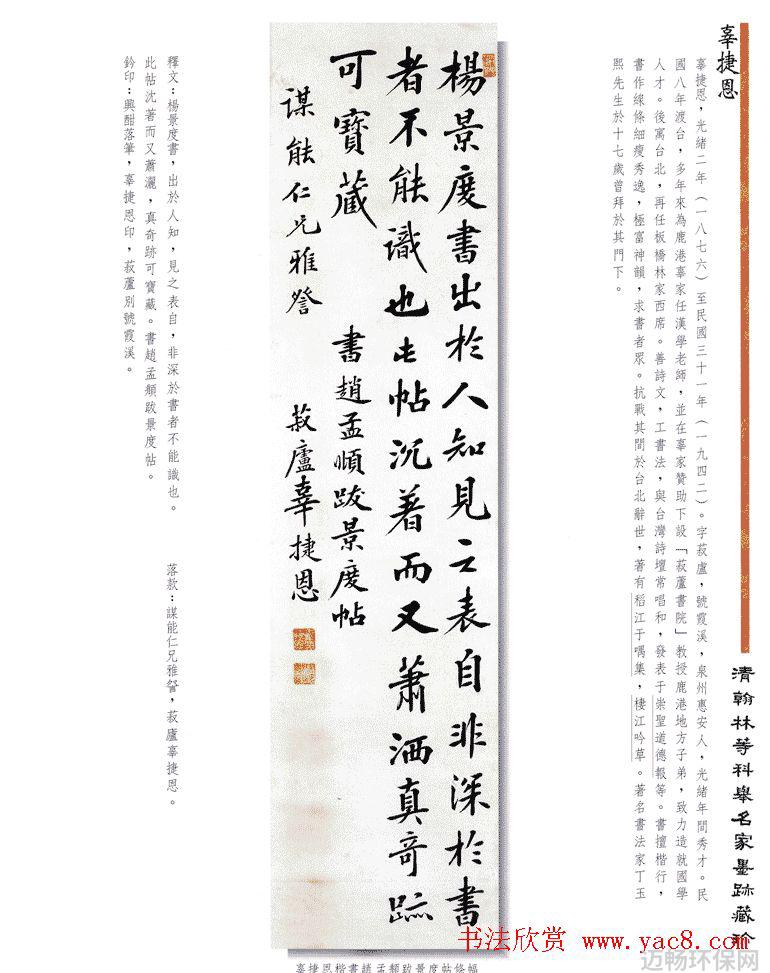 辜捷恩
辜捷恩，光緒二年（一八七六）至民國三十一年（一九四二）。字菽盧，號霞溪，泉州惠安人，光緒年間秀才。民
國八年渡台，多年來為鹿港辜家任漢學老師，並在辜家贊助下設「菽蘆書院」教授鹿港地方子弟，致力造就國學
人才。後寓台北，再任板橋林家西席。善詩文，工書法，與台灣詩壇常唱和，發表于崇聖道德報等。書擅楷行，
書作線條細瘦秀逸，極富神韻，求書者眾。抗戰其間於台北辭世，著有稻江于喁集，棲江吟草。著名書法家丁玉
熙先生於十七歲曾拜於其門下。
清翰林等科舉名家墨跡藏珍
楊景度書出於人知見之表自非深於書
者不能識也此帖沉著而又蕭洒真奇跡
可寶藏
書趙孟頫跋景度帖
謀能仁兄雅詧
菽廬辜捷恩
釋文：楊景度書，出於人知，見之表自，非深於書者不能識也。
此帖沈著而又蕭灑，真奇跡可寶藏。書趙孟頫跋景度帖。
落款：謀能仁兄雅詧，菽廬辜捷恩。
鈐印：興酣落筆，辜捷恩印，菽蘆別號霞溪。
辜捷恩楷書趙孟頫跋景度帖條幅
书法欣赏 www.yac8.com
迈畅环保网